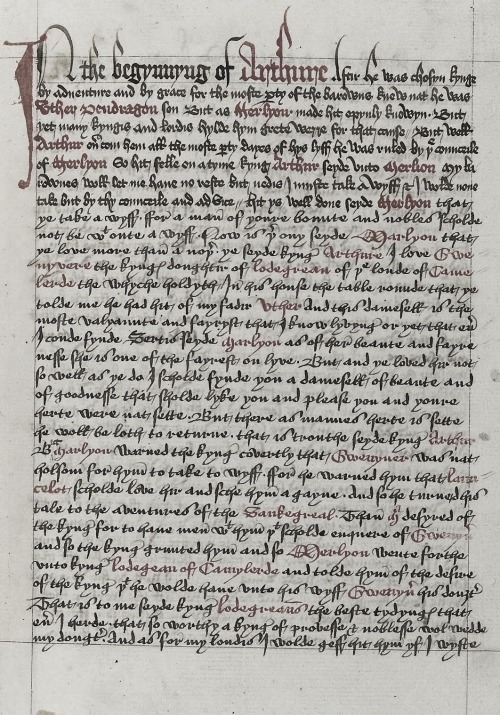 In the begynnyng of Arthure Aftir he was chosyn kynge
by adventure and by grace for the moste pty of the barowns knew nat he was
Uther Pendragon son But as Merlyon made hit opynly knowyn. But
yet many kyngis and lordis hylde hym grete werre for that cause / But well
Arthur ou com hem all the moste pty dayes of hys lyff he was ruled by yͤ counceile
of Merlyon So hit felle on a tyme kyng Arthur seyde unto Merlion My ba
rownes woll let me have no reste but nedis I muste take a wyff & I wolde none
take but by thy counceile and advice / hit ys well done seyde Merlyon that
ye take a wyff. ffor a man of youre bounte and nobles scholde
not be wᵗ oute a wyff. Now is yʳ ony seyde Marlyon that
ye love more than a noyʳ. ye seyde kyng Arthure I love Gwe
nyvere the kynges doughtir of lodegrean of yͤ londe of Came
lerde the whyche holdyth In his house the table rounde that ye
tolde me he had hit of my fadir Uther And this damesell is the
moste valyaunte and fayryst that I know lyvyng or yet that eũ
I coude fynde. Sertis seyde Marlyon as of her beaute and fayre
nesse she is one of the fayrest on lyve. But and ye loved hir not
so well as ye do I scholde fynde you a damesell of beaute and
of goodnesse that sholde lyke you and please you and youre
herte were nat sette. But there as mannes herte is sette
he woll be loth to returne. that is trouthe seyde kyng Arthur
But Marlyon warned the kyng covertly that Gwenyver was nat
holsom for hym to take to wyff. ffor he warned hym that laun
celot scholde love hir and sche hym a gayne. and so he turned his
tale to the aventures of the Sankegreal. Than M desyred of
the kyng for to have men wᵗ hym yᵗ scholde enquere of Gwenyv
and so the kyng graunted hym and so Merlyon wente forthe
unto kyng lodegean of Camylerde and tolde hym of the desire
of the kyng yᵗ he wolde have unto his wyff Gwenyũ his douȝtʳ
That is to me seyde kyng lodegreans the beste tydynges that
eũ I herde. that so worthy a kyng of prouesse & noblesse wol wedde
my douȝtʳ. And as for my londis I wolde geff hit hym yf I wyste